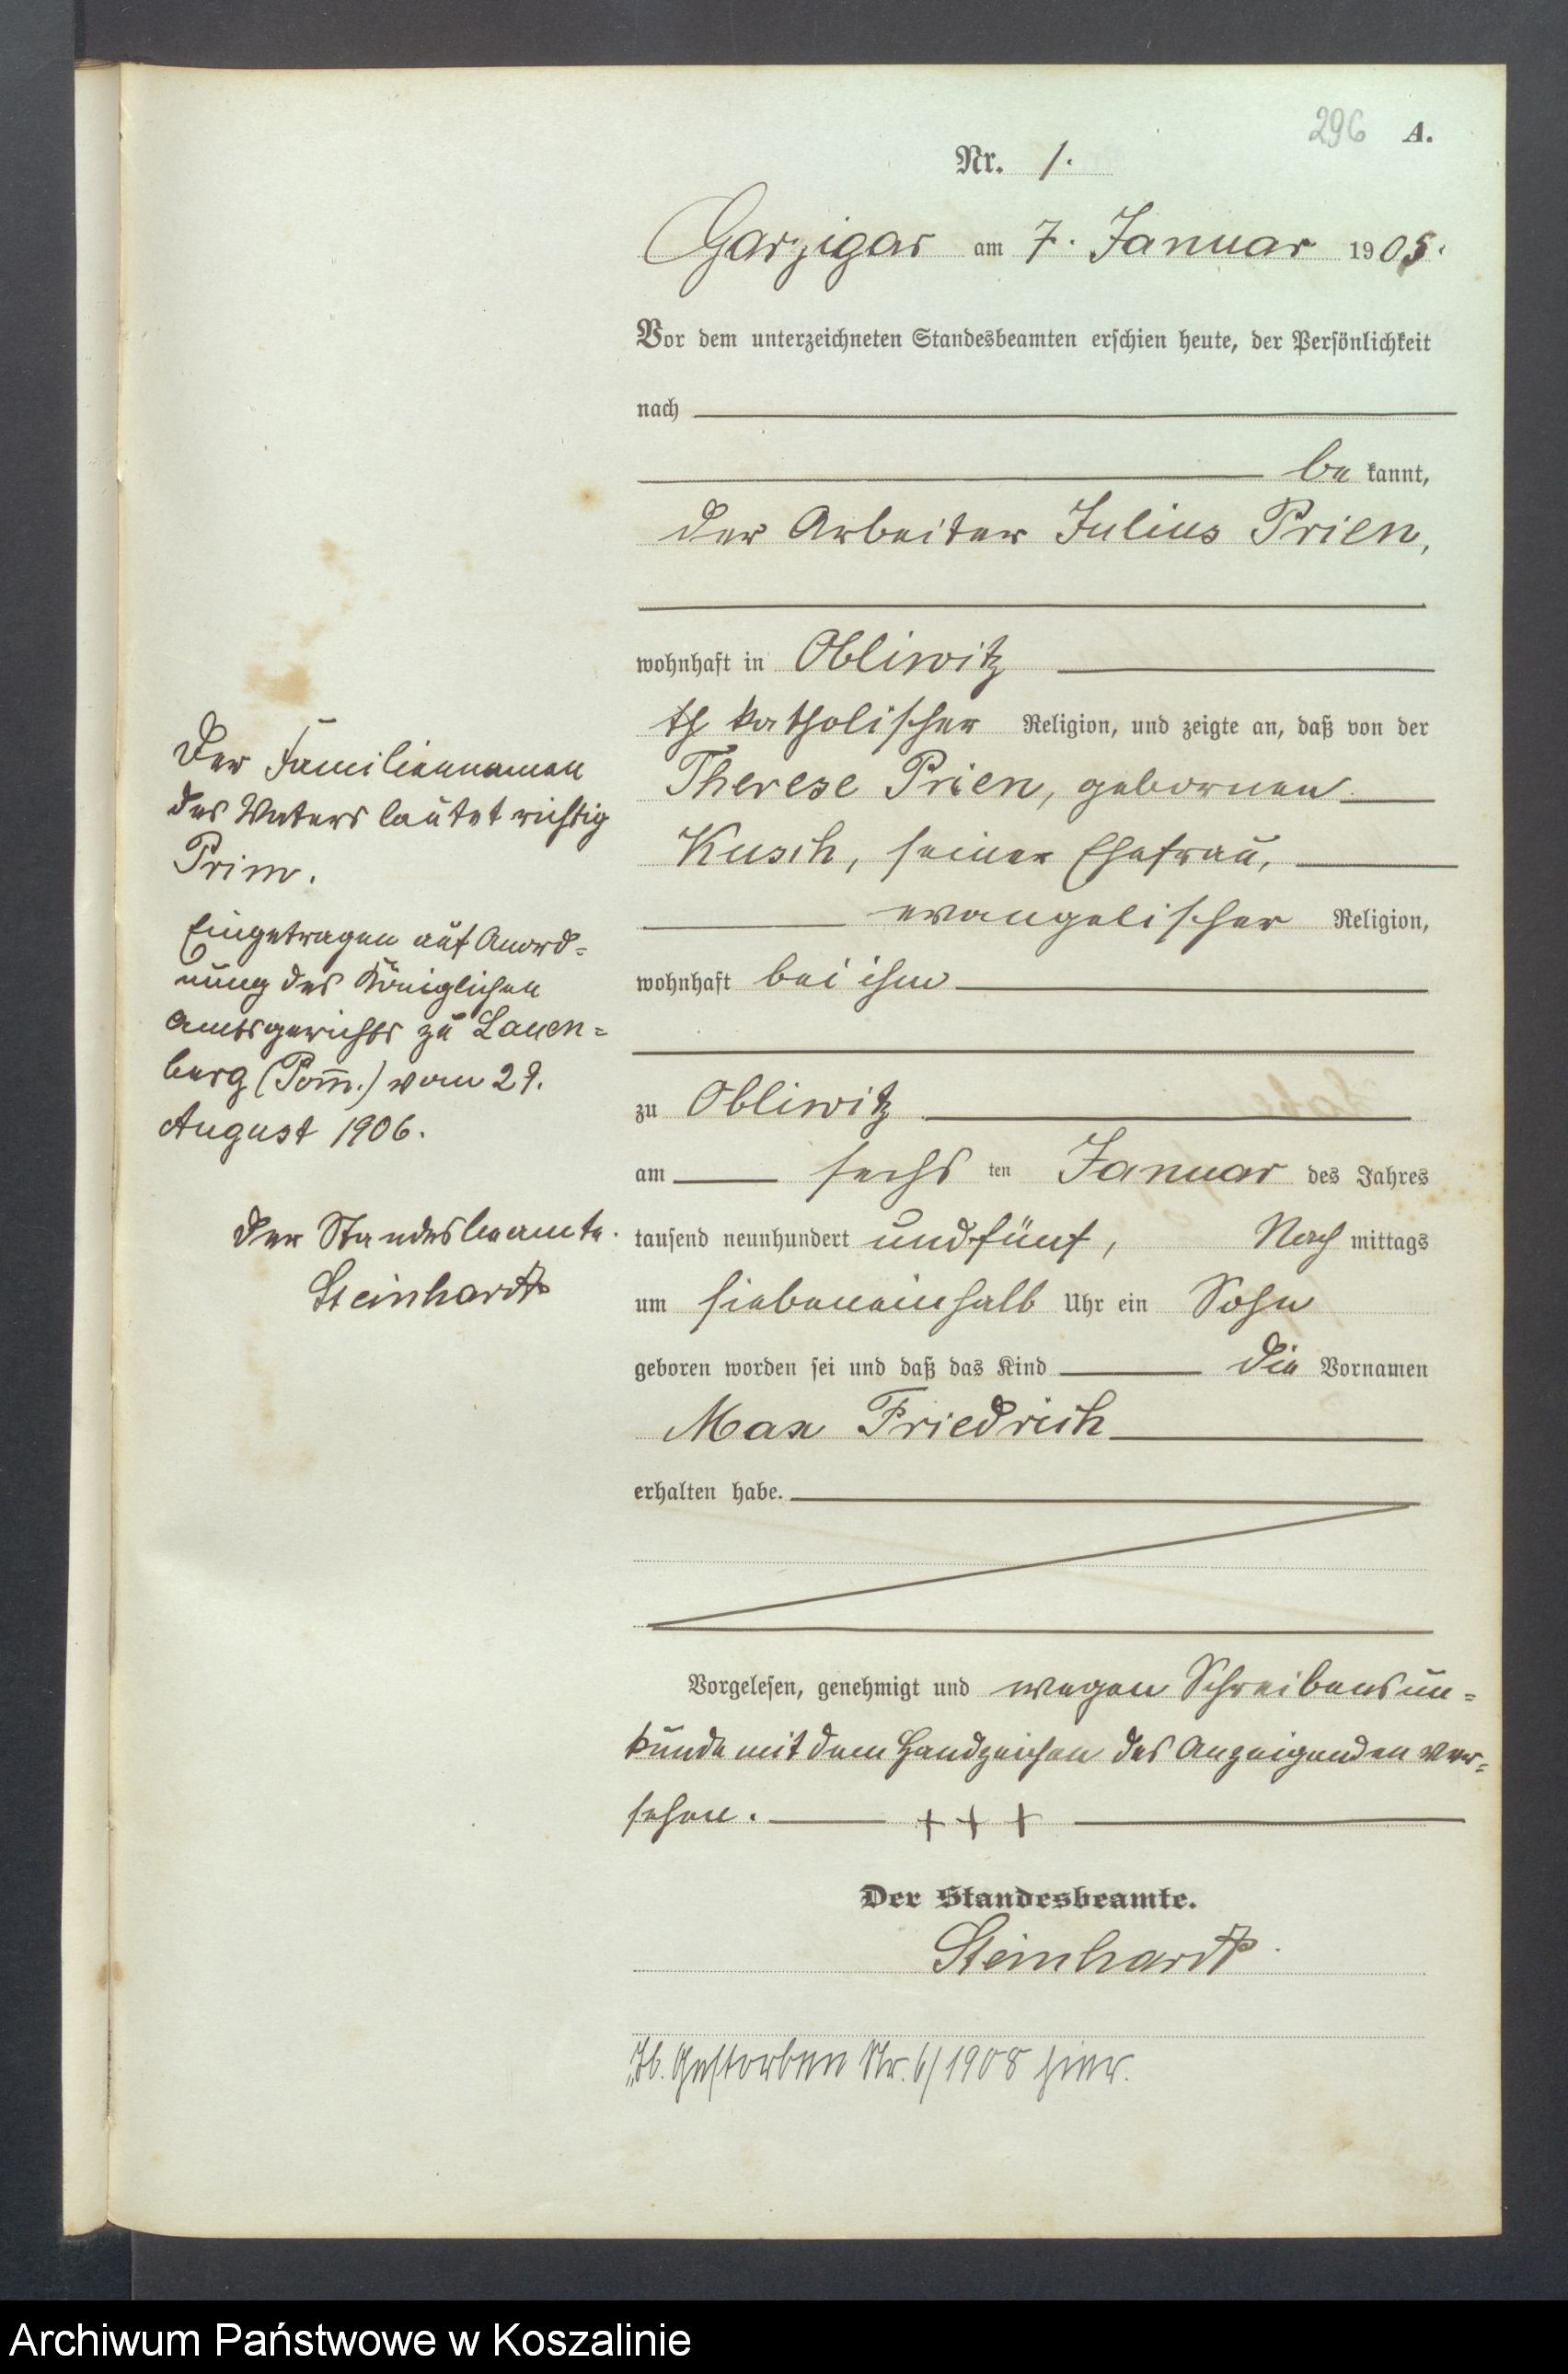 296 A.
Nr. 1.
Garzigar am 7. Januar 1905.
Vor dem unterzeichneten Standesbeamten erschien heute, der Persönlichkeit
nach
be kannt,
der Arbeiter Julius Prien,
wohnhaft in Obliwitz
katholischer Religion, und zeigte an, daß von der
Therese Prien, gebornen
Kusch, seiner Ehefrau,
evangelischer Religion,
wohnhaft bei ihm
zu Obliwitz
am sechs ten Januar des Jahres
tausend neunhundert undfünf, Nach mittags
um siebeneinhalb Uhr ein Sohn
geboren worden sei und daß das Kind die Vornamen
Max Friedrich
erhalten habe.
Vorgelesen, genehmigt und wegen Schreibensun=
kunde mit dem Handzeichen des Anzeigenden ver=
sehen. + + +
Der Standesbeamte.
Steinhardt
Gestorben Nr. 6/1908 hier.
Der Familiennamen
des Vaters lautet richtig
Prim.
Eingetragen auf Anord=
nung des Königlichen
Amtsgerichts zu Lauen=
burg (Pom̅.) vom 29.
August 1906.
Der Standesbeamte.
Steinhardt
Archiwum Państwowe w Koszalinie